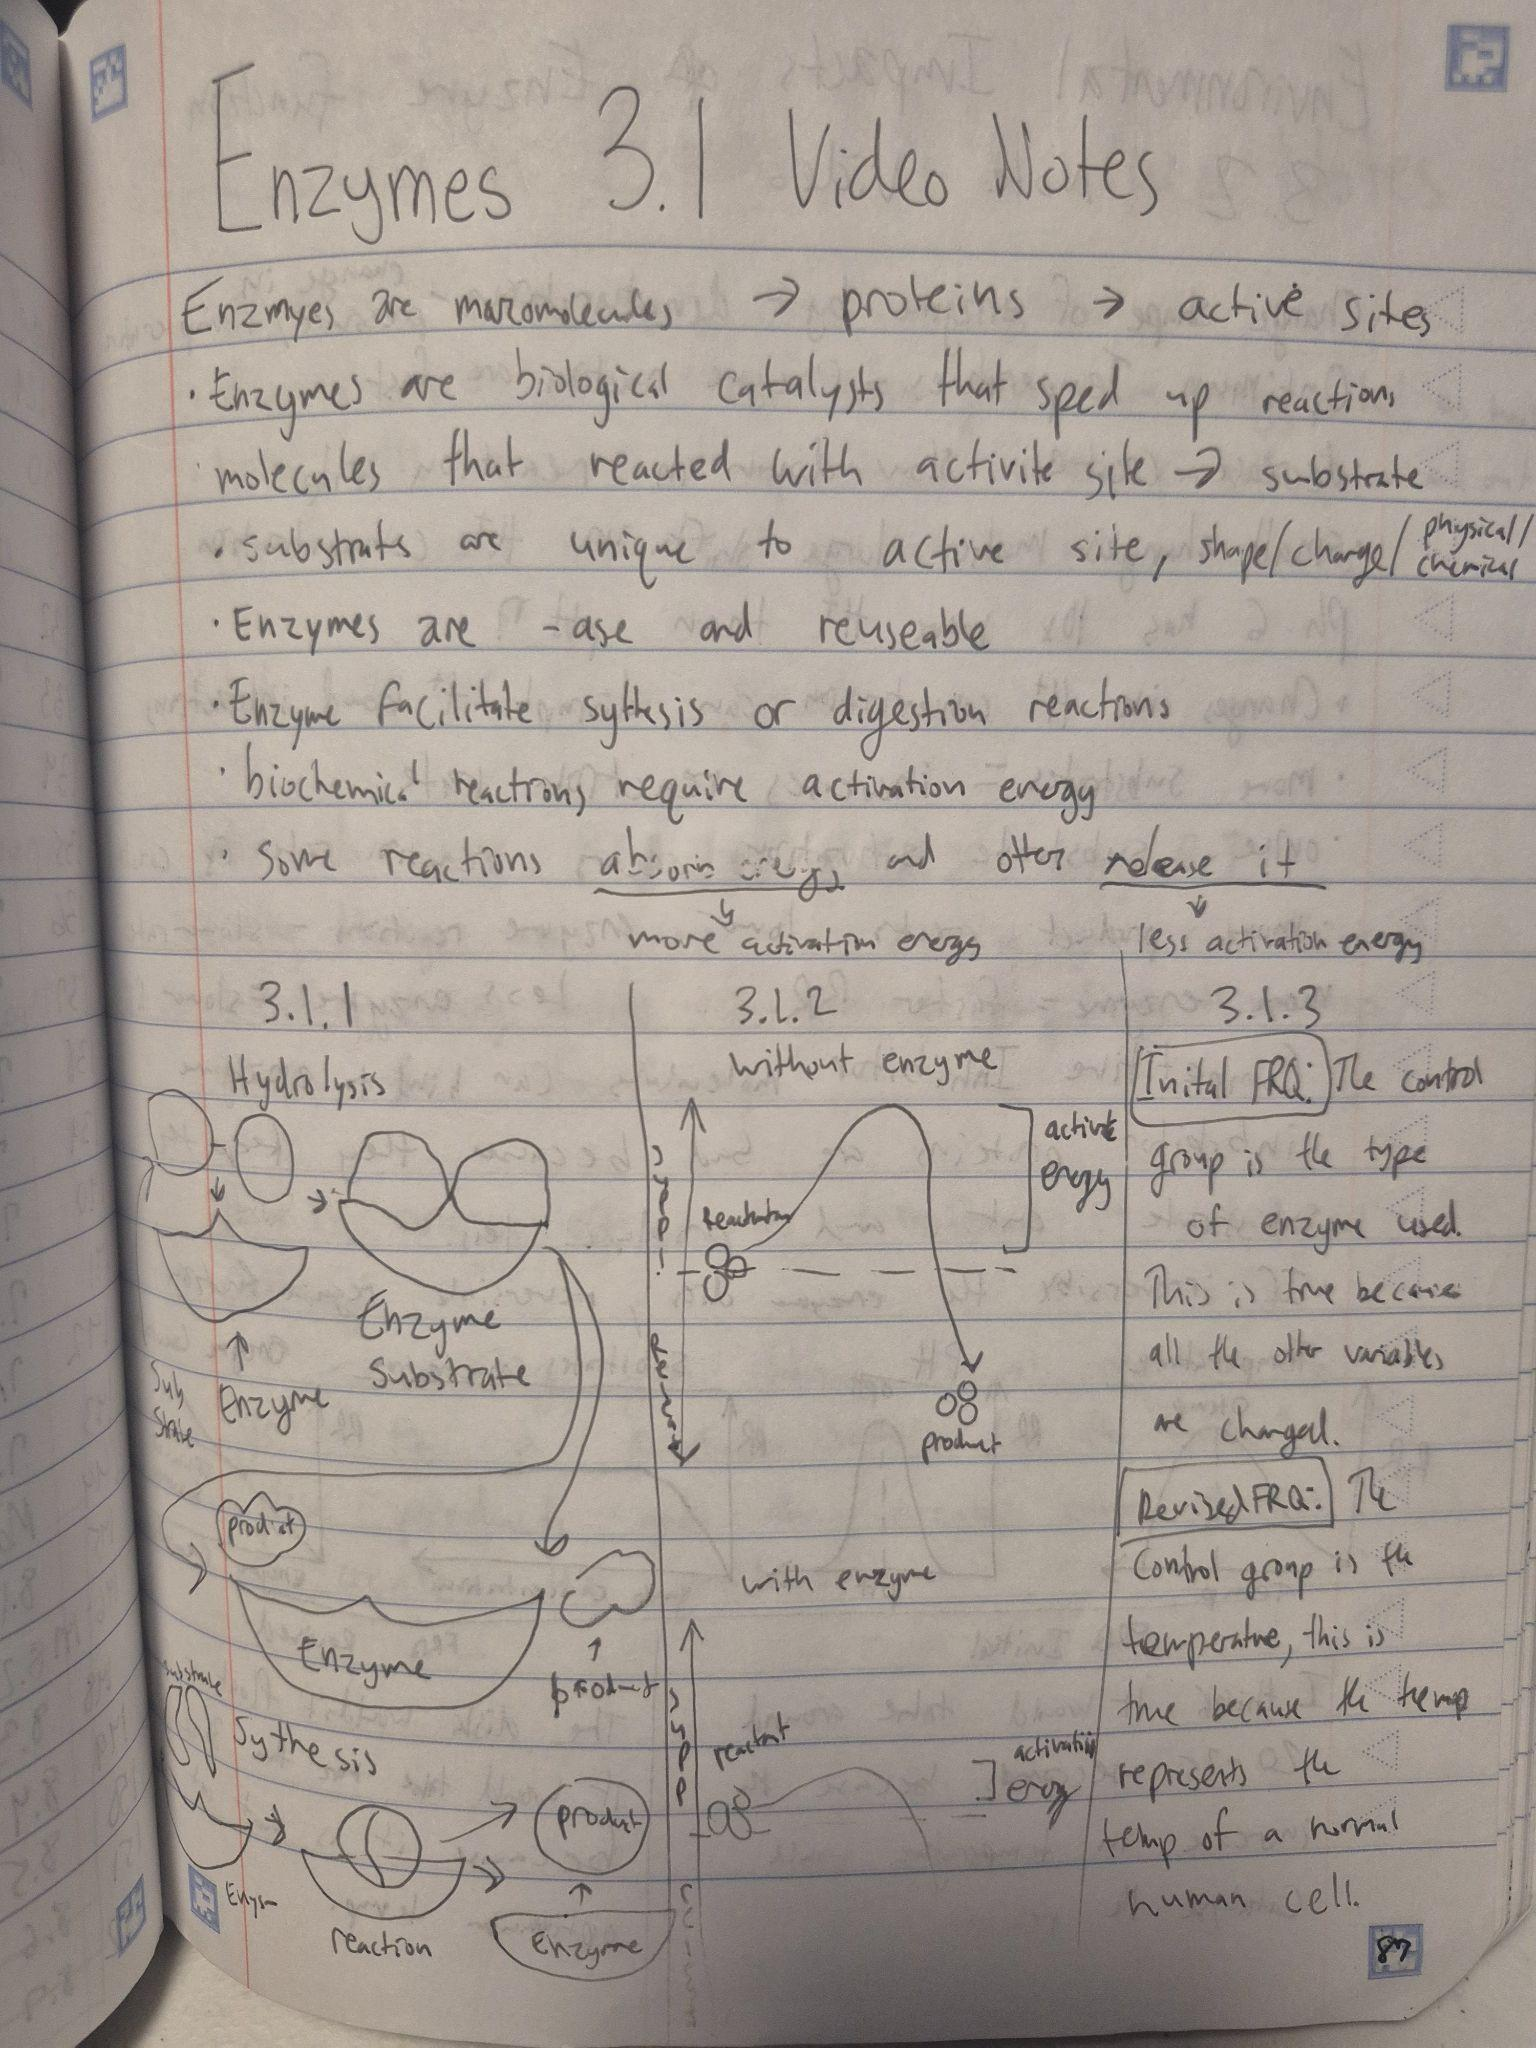 Enzymes 3.1 Video Notes
Enzmyes are macromolecules → proteins → active sites
· Enzymes are biological catalysts that sped up reactions
molecules that reacted with activite site → substrate
· substrates are unique to active site, shape/charge/physical/
chemical
· Enzymes are -ase and reuseable
· Enzyme facilitate sythesis or digestion reactions
· biochemical reactions require activation energy
· Some reactions absorb energy and other release it
more activation energy
less activation energy
3.1.1
Hydrolysis
Enzyme
Substrate
Sub
strate
Enzyme
product
Enzyme
product
substrate
Sythesis
product
reaction
Enzyme
3.1.2
without enzyme
active
energy
product
with enzyme
reactant
activation
energy
3.1.3
Inital FRQ: The control
group is the type
of enzyme used.
This is true because
all the other variables
are changed.
Revised FRQ: The
Control group is the
temperature, this is
true because the temp
represents the
temp of a normal
human cell.
87